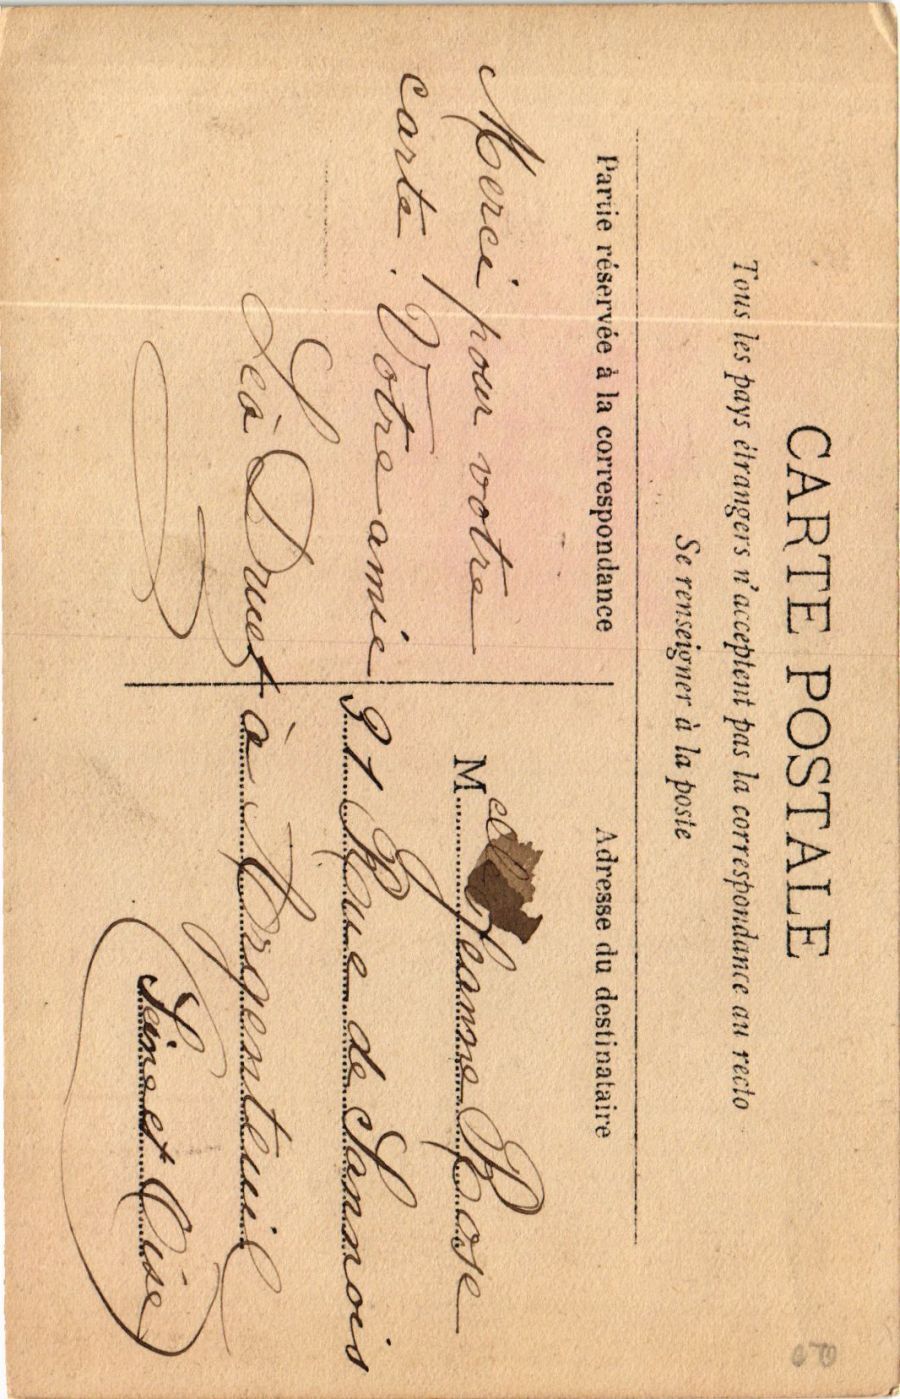 CARTE POSTALE
Tous les pays étrangers n'acceptent pas la correspondance au recto
Se renseigner à la poste
Partie réservée à la correspondance
Merci pour votre
carte. Votre amie
Léa Druet
Adresse du destinataire
Melle Jeanne Rose
91 Rue de Sannois
à Argenteuil
Seine et Oise